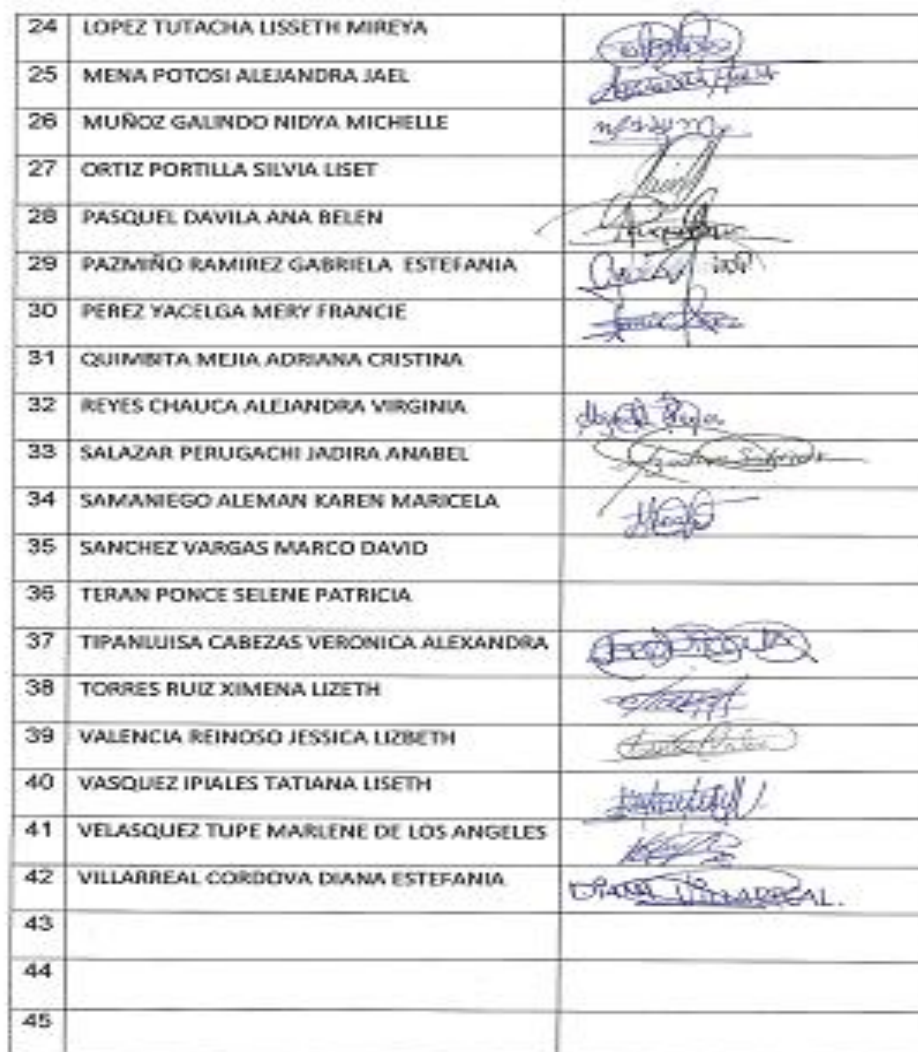 24 LOPEZ TUTACHA LISSETH MIREYA
25 MENA POTOSI ALEJANDRA JAEL
26 MUÑOZ GALINDO NIDYA MICHELLE
27 ORTIZ PORTILLA SILVIA LISET
28 PASQUEL DAVILA ANA BELEN
29 PAZMIÑO RAMIREZ GABRIELA ESTEFANIA
30 PEREZ YACELGA MERY FRANCIE
31 QUIMBITA MEJIA ADRIANA CRISTINA
32 REYES CHAUCA ALEJANDRA VIRGINIA
33 SALAZAR PERUGACHI JADIRA ANABEL
34 SAMANIEGO ALEMAN KAREN MARICELA
35 SANCHEZ VARGAS MARCO DAVID
36 TERAN PONCE SELENE PATRICIA
37 TIPANLUISA CABEZAS VERONICA ALEXANDRA
38 TORRES RUIZ XIMENA LIZETH
39 VALENCIA REINOSO JESSICA LIZBETH
40 VASQUEZ IPIALES TATIANA LISETH
41 VELASQUEZ TUPE MARLENE DE LOS ANGELES
42 VILLARREAL CORDOVA DIANA ESTEFANIA DIANA VILLARREAL.
43
44
45